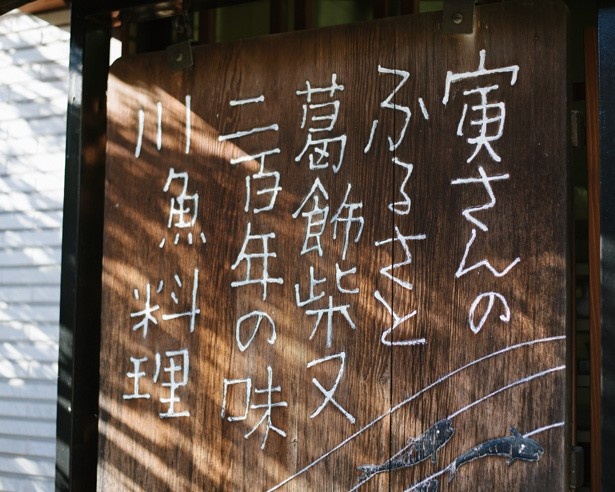 寅さんの
ふるさと
葛飾柴又
二百年の味
川魚料理